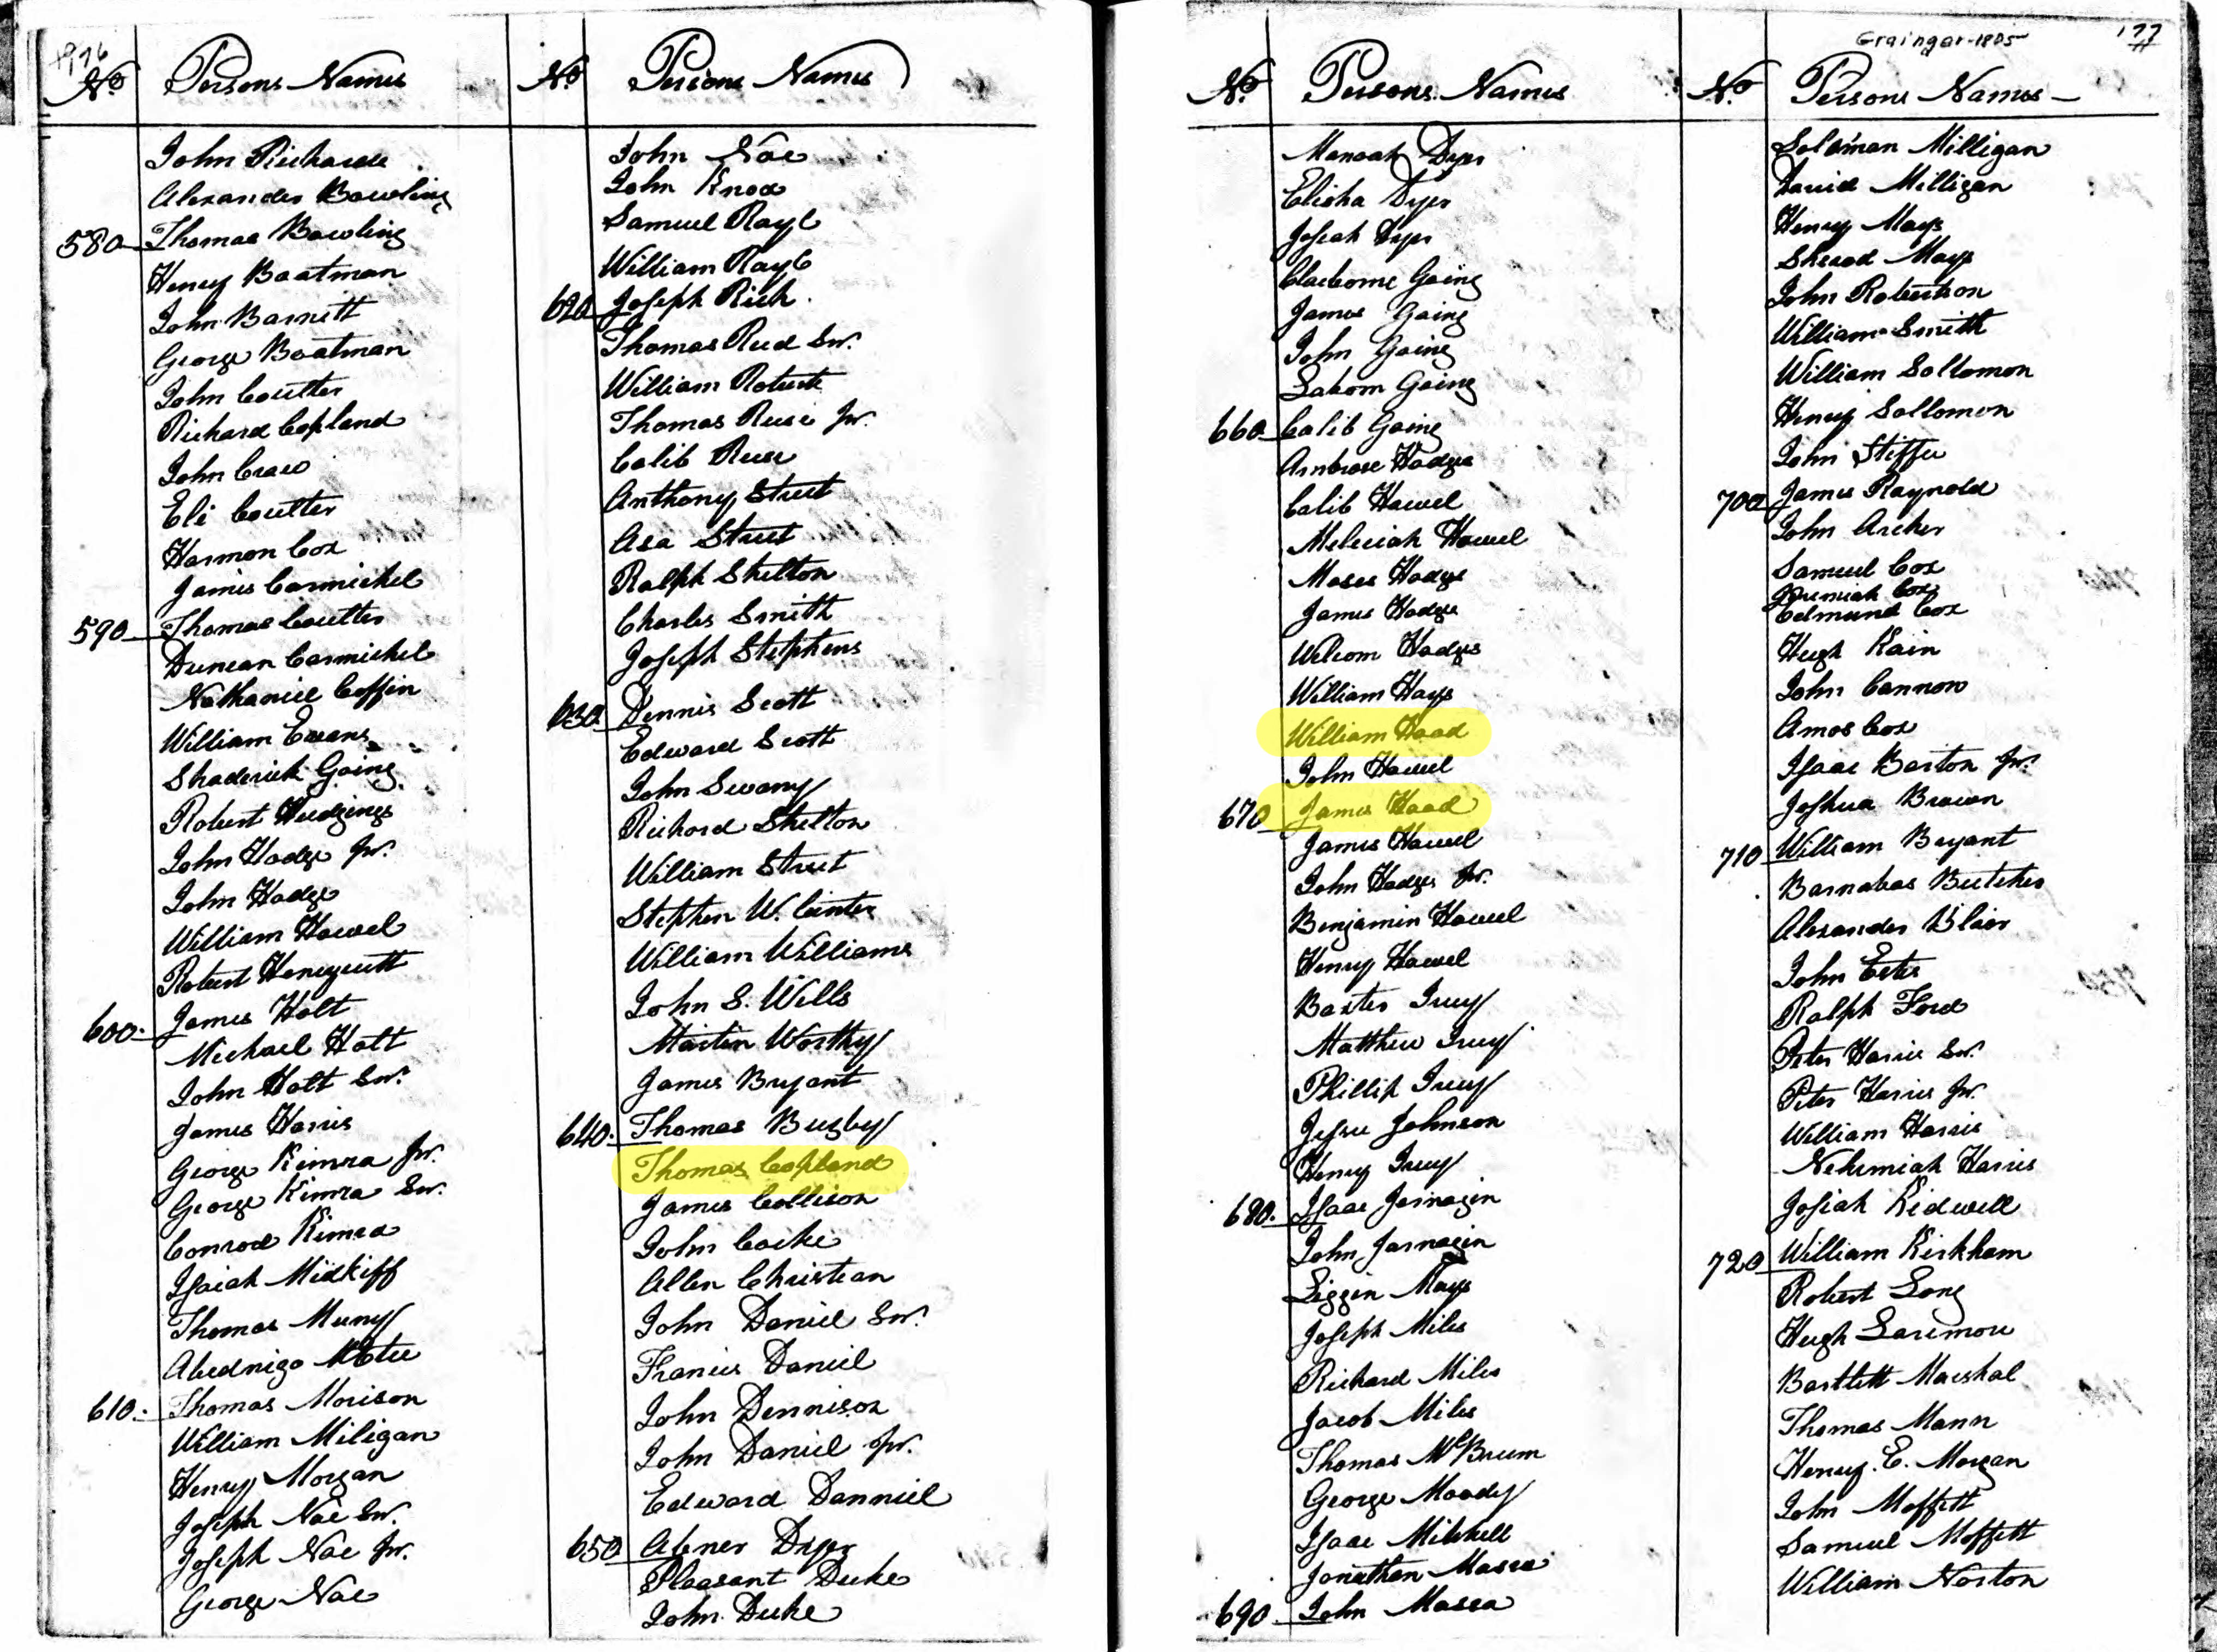 176
No Persons Names
John Richards
Alexander Bowling
580 Thomas Bowling
Henry Boatman
John Barnett
George Boatman
John Coulter
Richard Copland
John Craw
Eli Coulter
Harmon Cox
James Carmichel
590 Thomas Coulter
Duncan Carmichel
Nathaniel Coffin
William Evans
Shaderick Going
Robert Hudgings
John Hodge Jnr.
John Hodge
William Howel
Robert Honeycutt
600 James Holt
Michael Holt
John Holt Snr.
James Harris
George Kimra Jnr.
George Kimra Snr.
Conrod Kimra
Isaiah Midkiff
Thomas Muny
Abednigo
610 Thomas Morison
William Miligan
Henry Morgan
Joseph Noe Snr.
Joseph Noe Jnr.
George Noe
No Persons Names
John Noe
John Knox
Samuel Rayl
William Rayl
620 Joseph Rich
Thomas Reed Snr.
William Roberts
Thomas Reece Jnr.
Calib Reece
Anthony Street
Asa Street
Ralph Shelton
Charles Smith
Joseph Stephens
630 Dennis Scott
Edward Scott
John Swany
Richard Shelton
William Street
Stephen W. Center
William Williams
John S. Wills
Martin Worthy
James Bryant
640 Thomas Busby
Thomas Copland
James Collison
John Cocke
Allen Christian
John Daniel Snr.
Francis Daniel
John Dennison
John Daniel Jnr.
Edward Danniel
650 Abner Dyer
Pleasant Duke
John Duke
No Persons Names
Manoah Dyer
Elisha Dyer
Josiah Dyer
Claiborne Going
James Going
John Going
Laborn Going
660 Calib Going
Ambrose Hodge
Calib Howel
Maleciah Howel
Moses Hodge
James Hodge
Welcom Hodges
William Hays
William Hood
John Howel
670 James Hood
James Howel
John Hodges Jnr.
Benjamin Howel
Henry Howel
Baxter Ivey
Matthew Ivey
Phillip Ivey
Jesse Johnson
Henry Ivey
680 Isaac Jarnagin
John Jarnagin
Liggin Mays
Joseph Miles
Richard Miles
Jacob Miles
Thomas McBrum
George Moody
Isaac Mitchell
Jonathan Massa
690 John Massa
Grainger-1805
177
No Persons Names
Solomon Milligan
David Milligan
Henry Mays
Sherod Mays
John Robertson
William Smith
William Sollomon
Henry Sollomon
John Steffee
700 James Raynold
John Archer
Samuel Cox
Jeremiah Cox
Edmund Cox
Hugh Kain
John Cannon
Amos Cox
Isaac Barton Jnr.
Joshua Brown
710 William Bryant
Barnabas Butcher
Alexander Blair
John Estes
Ralph Ford
Peter Harris Snr.
Peter Harris Jnr.
William Harris
Nehemiah Harris
Josiah Kidwell
720 William Kirkham
Robert Long
Hugh Larimore
Bartlett Marshal
Thomas Mann
Henry E. Morgan
John Moffett
Samuel Moffett
William Norton